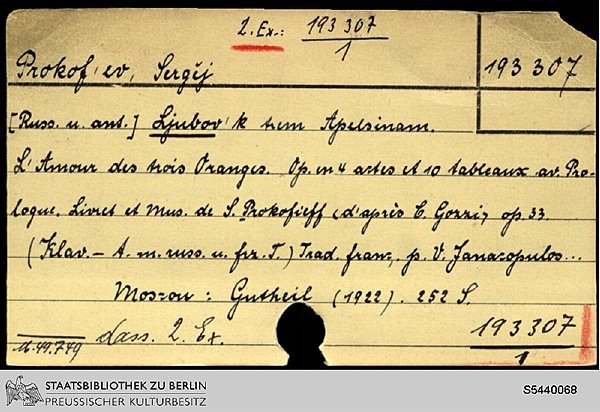 2. Ex.: 193 307
1
Prokof'ev, Sergěj
193 307
[Russ. u. ant.] Ljubov' k trem Apelsinam.
L'Amour des trois Oranges. Op. en 4 actes et 10 tableaux av. Pro-
logue. Livret et Mus. de S. Prokofieff (d'après C. Gozzi) op. 33.
(Klav.-A. m. russ. u. frz. T.) Trad. franç. p. V. Janacopulos...
Moscou: Gutheil (1922). 252 S.
193307
1
dass. 2. Ex.
M. 49.749
STAATSBIBLIOTHEK ZU BERLIN
PREUSSISCHER KULTURBESITZ
S5440068